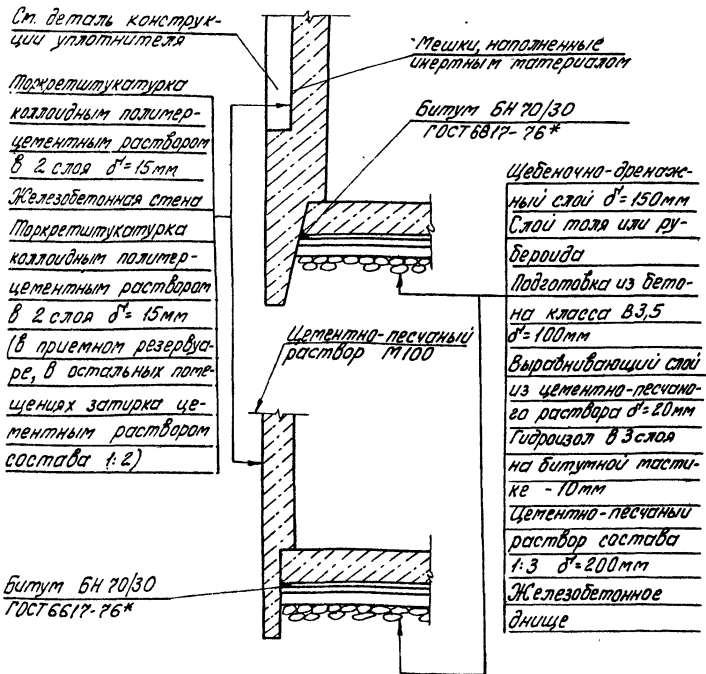 См. деталь конструк-
ции уплотнителя
Торкретштукатурка
коллоидным полимер-
цементным раствором
в 2 слоя δ=15мм
Железобетонная стена
Торкретштукатурка
коллоидным полимер-
цементным раствором
в 2 слоя δ=15мм
(в приемном резервуа-
ре, в остальных поме-
щениях затирка це-
ментным раствором
состава 1:2)
Мешки, наполненные
инертным материалом
Битум БН 70/30
ГОСТ 6817-76*
Цементно-песчаный
раствор М100
Битум БН 70/30
ГОСТ 6617-76*
Щебеночно-дренаж-
ный слой δ=150мм
Слой толя или ру-
бероида
Подготовка из бето-
на класса В3,5
δ=100мм
Выравнивающий слой
из цементно-песчано-
го раствора δ=20мм
Гидроизол в 3 слоя
на битумной масти-
ке -10мм
Цементно-песчаный
раствор состава
1:3 δ=200мм
Железобетонное
днище